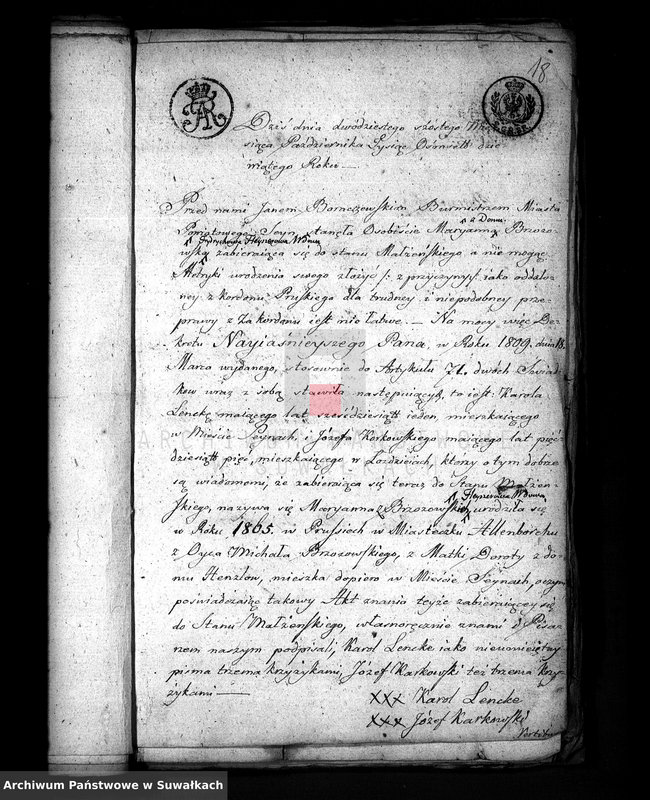 18
Dziś dnia dwódziestego szóstego Mie-
siąca Października Tysiąc Ośmset dzie
wiątego Roku
Przed nami Janem Borneszewskim Burmistrzem Miasta
Powiatowego Seyn, stanęła Osobiście Maryanna z Domu Brzozo-
wska Frydrychowa Heynrowa Wdowa zabieraiąca się do stanu Małżeńskiego a nie mogąc
Metryki urodzenia swego złożyć /: z przyczyny iako oddalo-
ney z kordonu Pruskiego dla trudney i niepodobney prze-
prawy z Za kordonu iest nie łatwe. — Na mocy więc De-
kretu Nayiaśnieyszego Pana, w Roku 1809. dnia 18
Marca wydanego, stosownie do Artykułu 71. dwóch Świad-
ków wraz z sobą stawiła następuiących, to iest: Karola
Lenckę maiącego lat sześćdziesiąt ieden, mieszkaiącego
w Mieście Seynach, i Józefa Korkowskiego maiącego lat pięć-
dziesiąt pięć, mieszkaiącego w Łozdzieiach, którzy o tym dobrze
są wiadomemi, że zabieraiąca się teraz do Stanu Małżeń-
skiego, nazywa się Maryanna z Brzozowskich Heynrowa Wdowa, urodziła się
w Roku 1865. w Prusiech w Miasteczku Allenborchu
z Oyca Michała Brzozowskiego, z Matki Doroty z do-
mu Henzlow, mieszka dopiero w Mieście Seynach, o czym
poświadczaiąc takowy Akt znania teyże zabieraiącey się
do Stanu Małżeńskiego, własnoręcznie znami i Pisa-
rzem naszym podpisali, Karol Lencke iako nieumieiętny
pisma trzema krzyżykami, Józef Karkowski też trzema krzy-
żykami —
XXX Karol Lencke
XXX Józef Karkowski
Archiwum Państwowe w Suwałkach